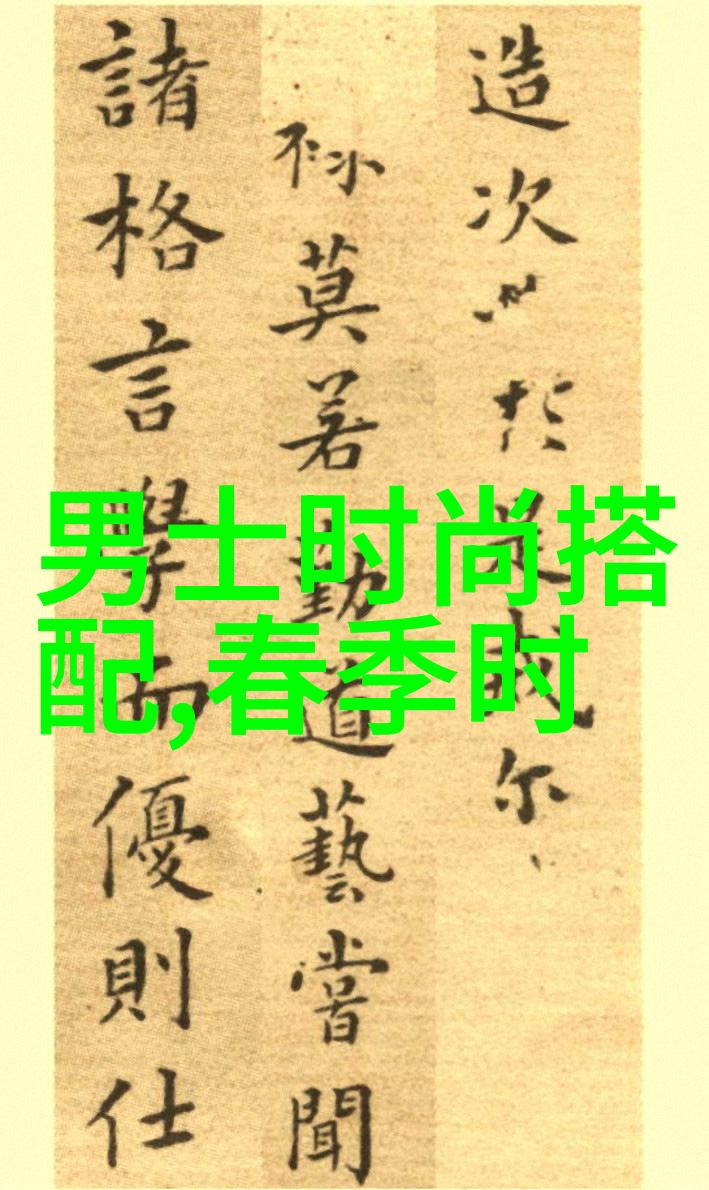 男士时尚搭
配,春季时
造次於是哉尔
莫若勤道藝嘗聞
諸格言學而優則仕